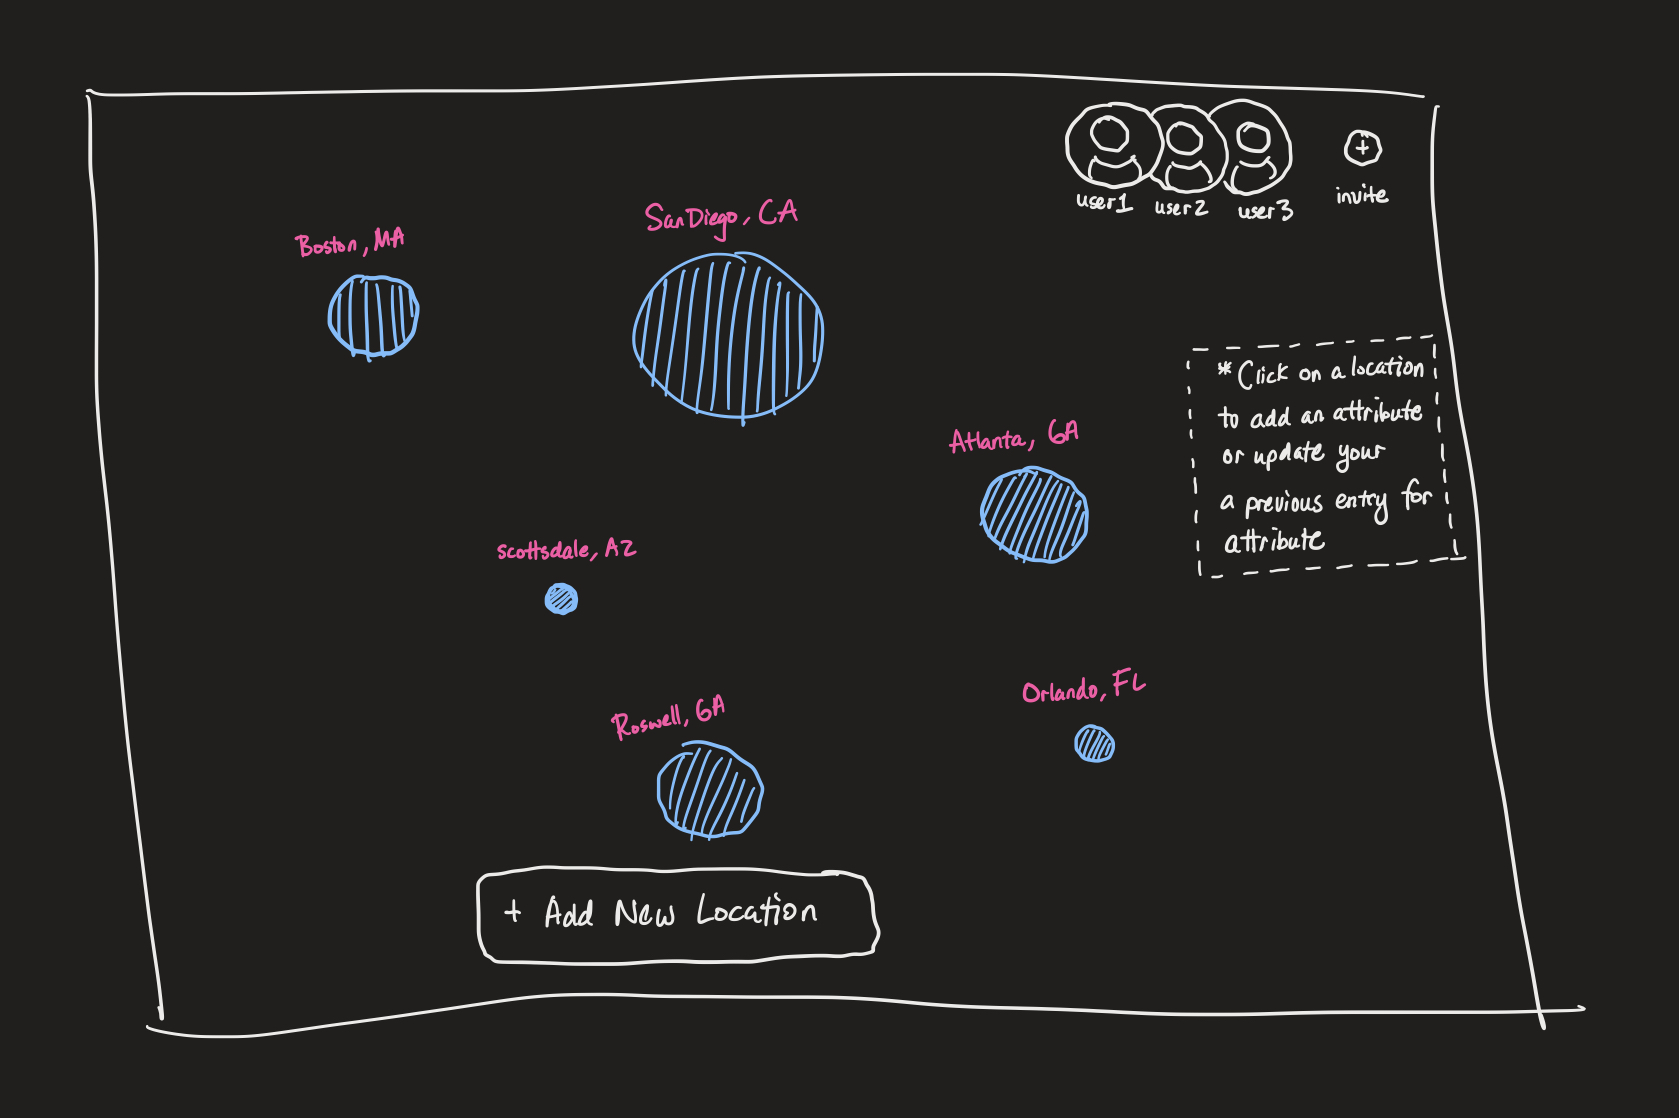 user1
user2
user3
+
invite
San Diego, CA
Boston, MA
*Click on a location
to add an attribute
or update your
a previous entry for
attribute
Atlanta, GA
Scottsdale, AZ
Orlando, FL
Roswell, GA
+ Add New Location